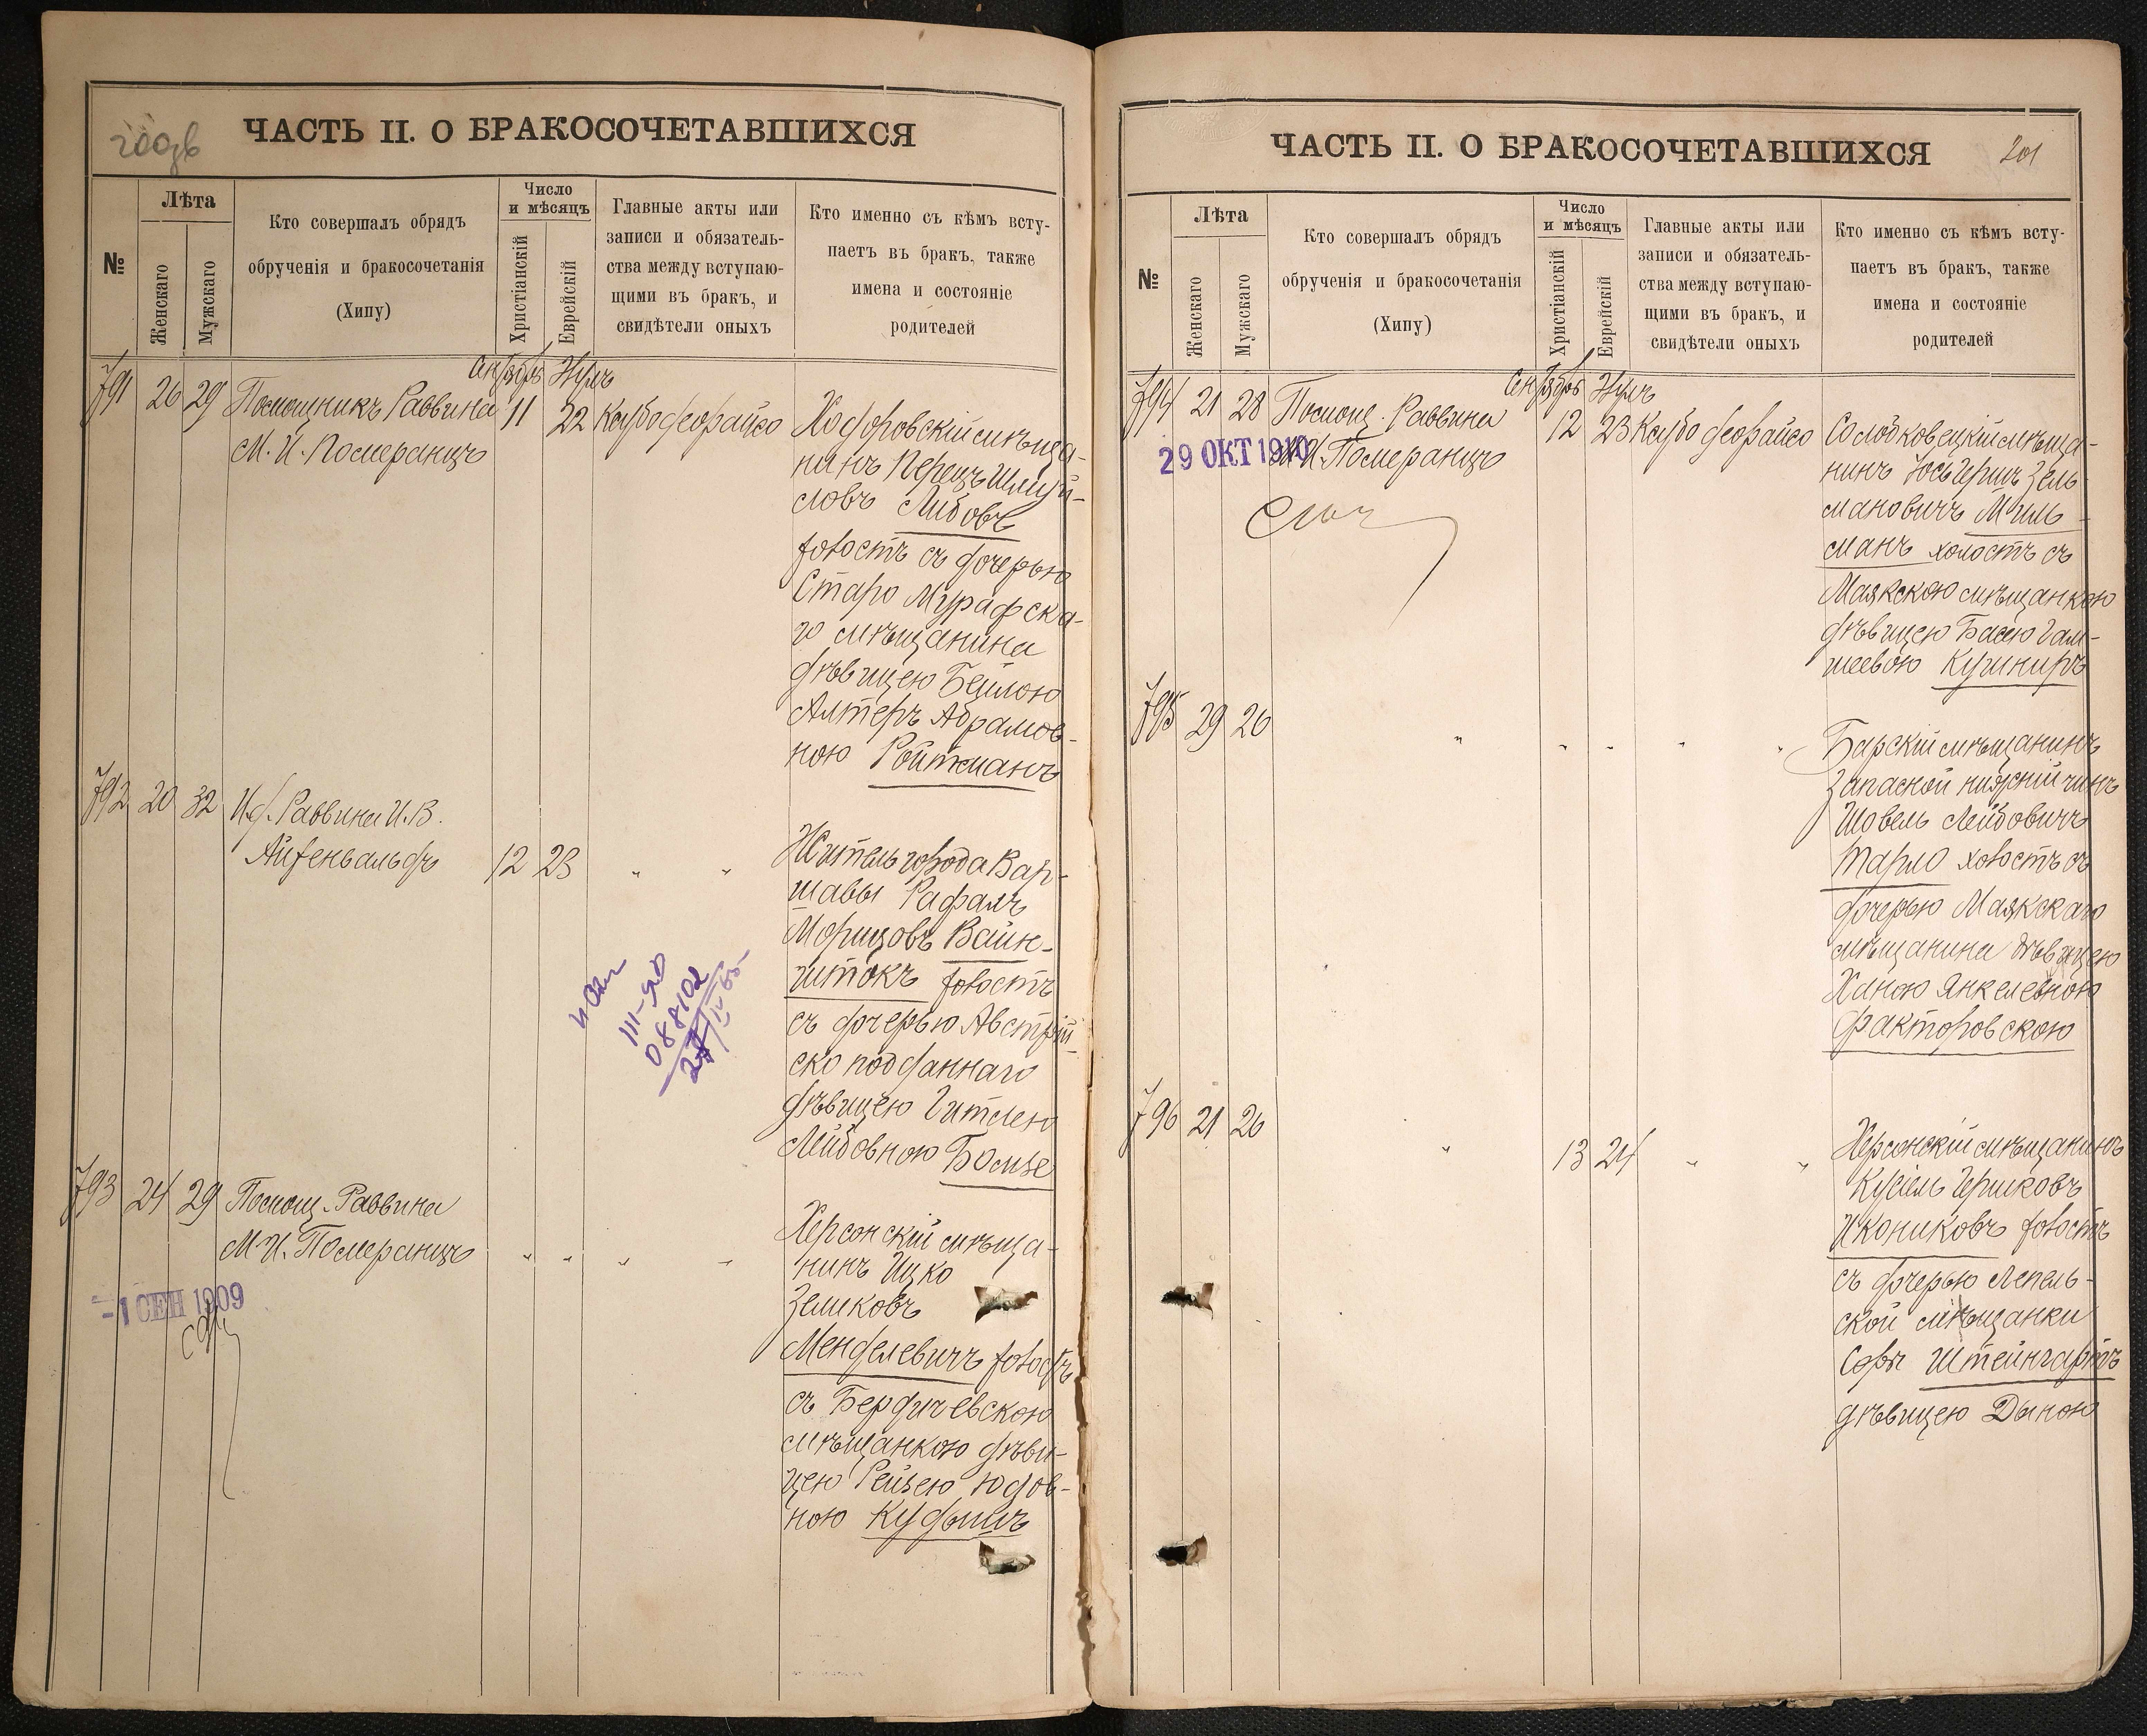 ЧАСТЬ II. О БРАКОСОЧЕТАВШИХСЯ
№
Лѣта
Женскаго
Мужскаго
Кто совершалъ обрядъ
обрученія и бракосочетанія
(Хипу)
Число
и мѣсяцъ
Христіанскій
Еврейскій
Главные акты или
записи и обязатель-
ства между вступаю-
щими въ бракъ, и
свидѣтели оныхъ
Кто именно съ кѣмъ всту-
паетъ въ бракъ, также
имена и состояніе
родителей
791 26 29 Помощникъ Раввина 11 22
М. И. Померанцъ
Ходоровскій мѣща-
нинъ Перецъ Шмуй-
ловъ Либовъ
холостъ съ дочерью
Старо Мурафска-
го мѣщанина
дѣвицею Бейлою
Алтеръ Абрамов-
ною Ройтманъ
792 20 32 И.д. Раввина И. В.
Айзенвальдъ 12 23 " "
Житель города Вар-
шавы Рафалъ
Морицовъ Вайн-
штокъ холостъ
съ дочерью Австрій-
ско подданнаго
дѣвицею Гитлею
Лейбовною Бомзе
III-ЯЮ
088102
793 24 29 Помощ. Раввина
М. И. Померанцъ " " " "
-1 СЕН 1909
Херсонскій мѣща-
нинъ Ицко
Зеликовъ
Менделевичъ холостъ
съ Бердичевскою
мѣщанкою дѣви-
цею Рейзею Юдов-
ною Кудышъ
ЧАСТЬ II. О БРАКОСОЧЕТАВШИХСЯ
201
№
Лѣта
Женскаго
Мужскаго
Кто совершалъ обрядъ
обрученія и бракосочетанія
(Хипу)
Число
и мѣсяцъ
Христіанскій
Еврейскій
Главные акты или
записи и обязатель-
ства между вступаю-
щими въ бракъ, и
свидѣтели оныхъ
Кто именно съ кѣмъ всту-
паетъ въ бракъ, также
имена и состояніе
родителей
794 21 28 Помощ. Раввина 12 23
М. И. Померанцъ
29 ОКТ 1910
Солобковецкій мѣща-
нинъ Юсь Герш Зель-
мановичъ Миль-
манъ холостъ съ
Маякскою мѣщанкою
дѣвицею Басею Гам-
шеевою Кушниръ
795 29 26 " " " " "
Барскій мѣщанинъ
Запасной нижній чинъ
Шовель Лейбовичъ
Тарло холостъ съ
дочерью Маякскаго
мѣщанина дѣвицею
Ханою Янкелевною
Факторовскою
796 21 26 " 13 24 " "
Херсонскій мѣщанинъ
Кусіель Гершковъ
Икониковъ холостъ
съ дочерью Лепель-
ской мѣщанки
Соры Штейнгартъ
дѣвицею Дыною